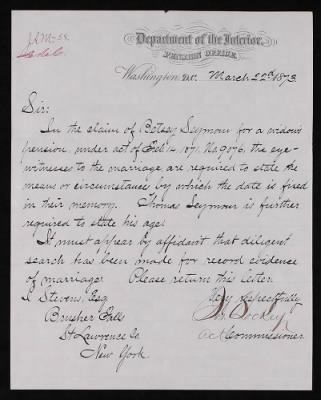 Department of the Interior,
PENSION OFFICE,
Washington, D.C. March 22d 1873
Sir:
In the claim of Betsey Seymour for a widows
pension, under act of Feb 14, 1871, No. 9076, the eye-
witnesses to the marriage, are required to state the
means or circumstances by which the date is fixed
in their memory. Thomas Seymour is further
required to state his age.
It must appear by affidavit that diligent
search has been made for record evidence
of marriage. Please return this letter.
Stevens, Esq Very respectfully
Brasher Falls
St Lawrence Co. Act Commissioner
New York.